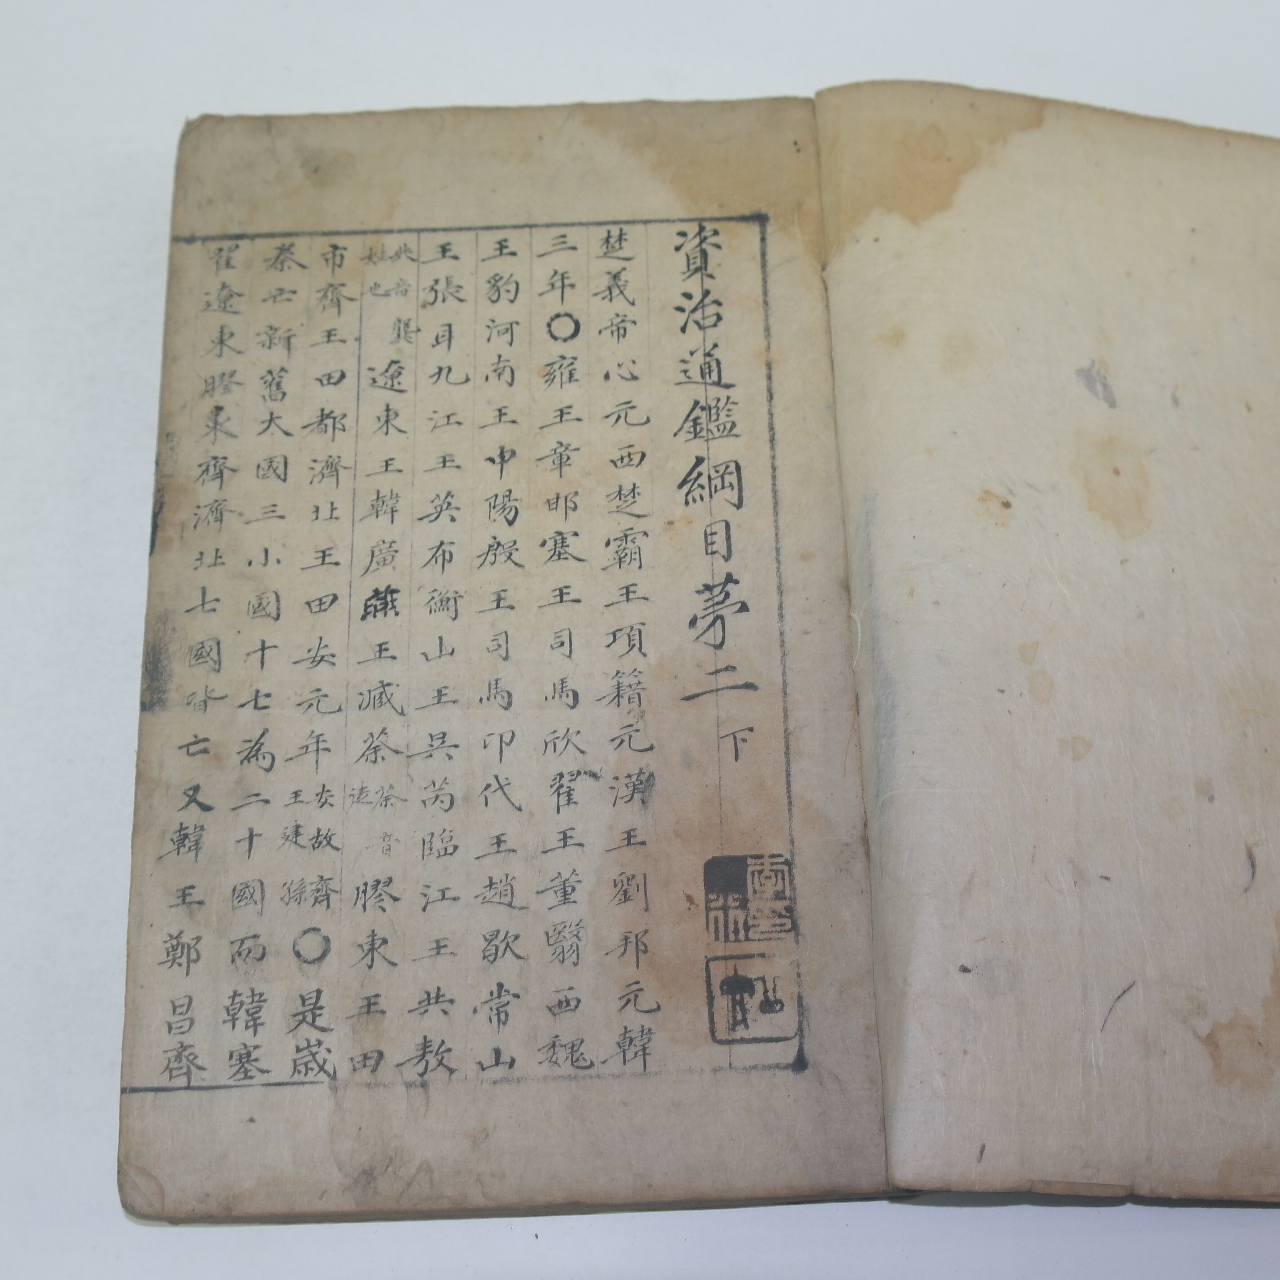 資治通鑑綱目苐二 下
楚義帝心元西楚霸王項籍元漢王劉邦元韓
三年〇雍王章邯塞王司馬欣翟王董翳西魏
王豹河南王申陽殷王司馬卬代王趙歇常山
王張耳九江王英布衡山王吳芮臨江王共敖
共音龔姓也遼東王韓廣燕王臧荼荼音膠東王田
市齊王田都濟北王田安元年安故齊王建孫〇是歲
秦亡新舊大國三小國十七為二十國而韓塞
翟遼東膠東齊濟北七國皆亡又韓王鄭昌齊